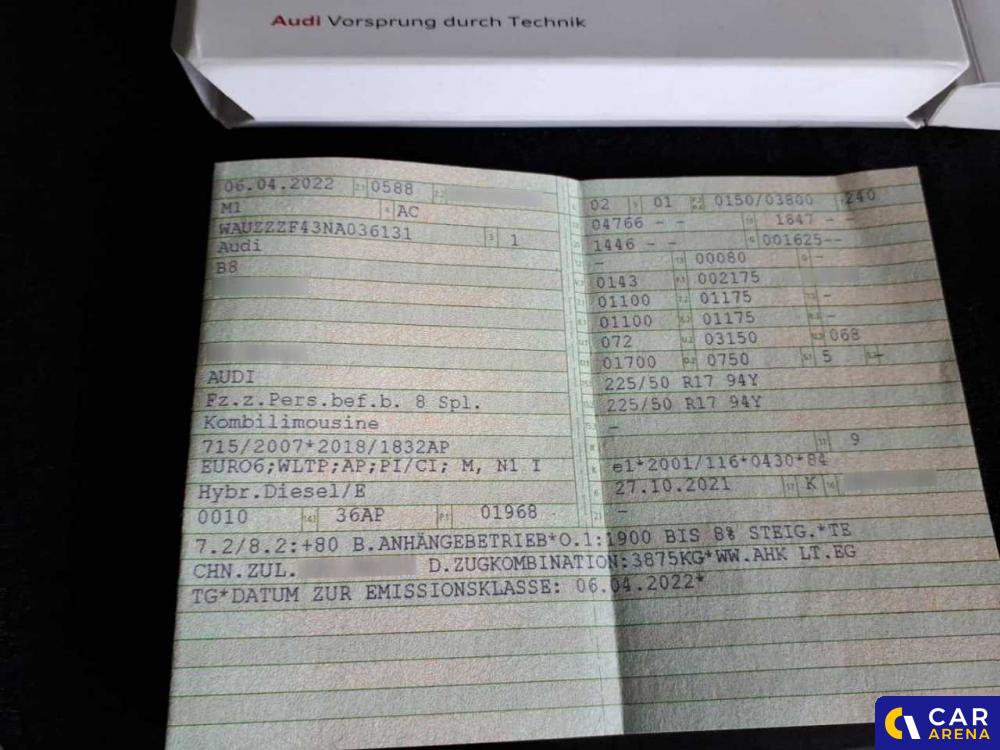 Audi Vorsprung durch Technik
06.04.2022 0588
M1 AC
WAUZZZF43NA036131 1
Audi
B8
AUDI
Fz.z.Pers.bef.b. 8 Spl.
Kombilimousine
715/2007*2018/1832AP
EURO6;WLTP;AP;PI/CI; M, N1 I
Hybr.Diesel/E
0010 36AP 01968
02 01 0150/03800 240
04766 - - 1847 - -
1446 - - 001625--
- 00080 -
0143 002175
01100 01175 -
01100 01175 -
072 03150 068
01700 0750 5 -
225/50 R17 94Y
225/50 R17 94Y
-
9
e1*2001/116*0430*84
27.10.2021 K
-
7.2/8.2:+80 B.ANHÄNGEBETRIEB*O.1:1900 BIS 8% STEIG.*TE
CHN.ZUL. D.ZUGKOMBINATION:3875KG*WW.AHK LT.EG
TG*DATUM ZUR EMISSIONSKLASSE: 06.04.2022*
CAR
ARENA